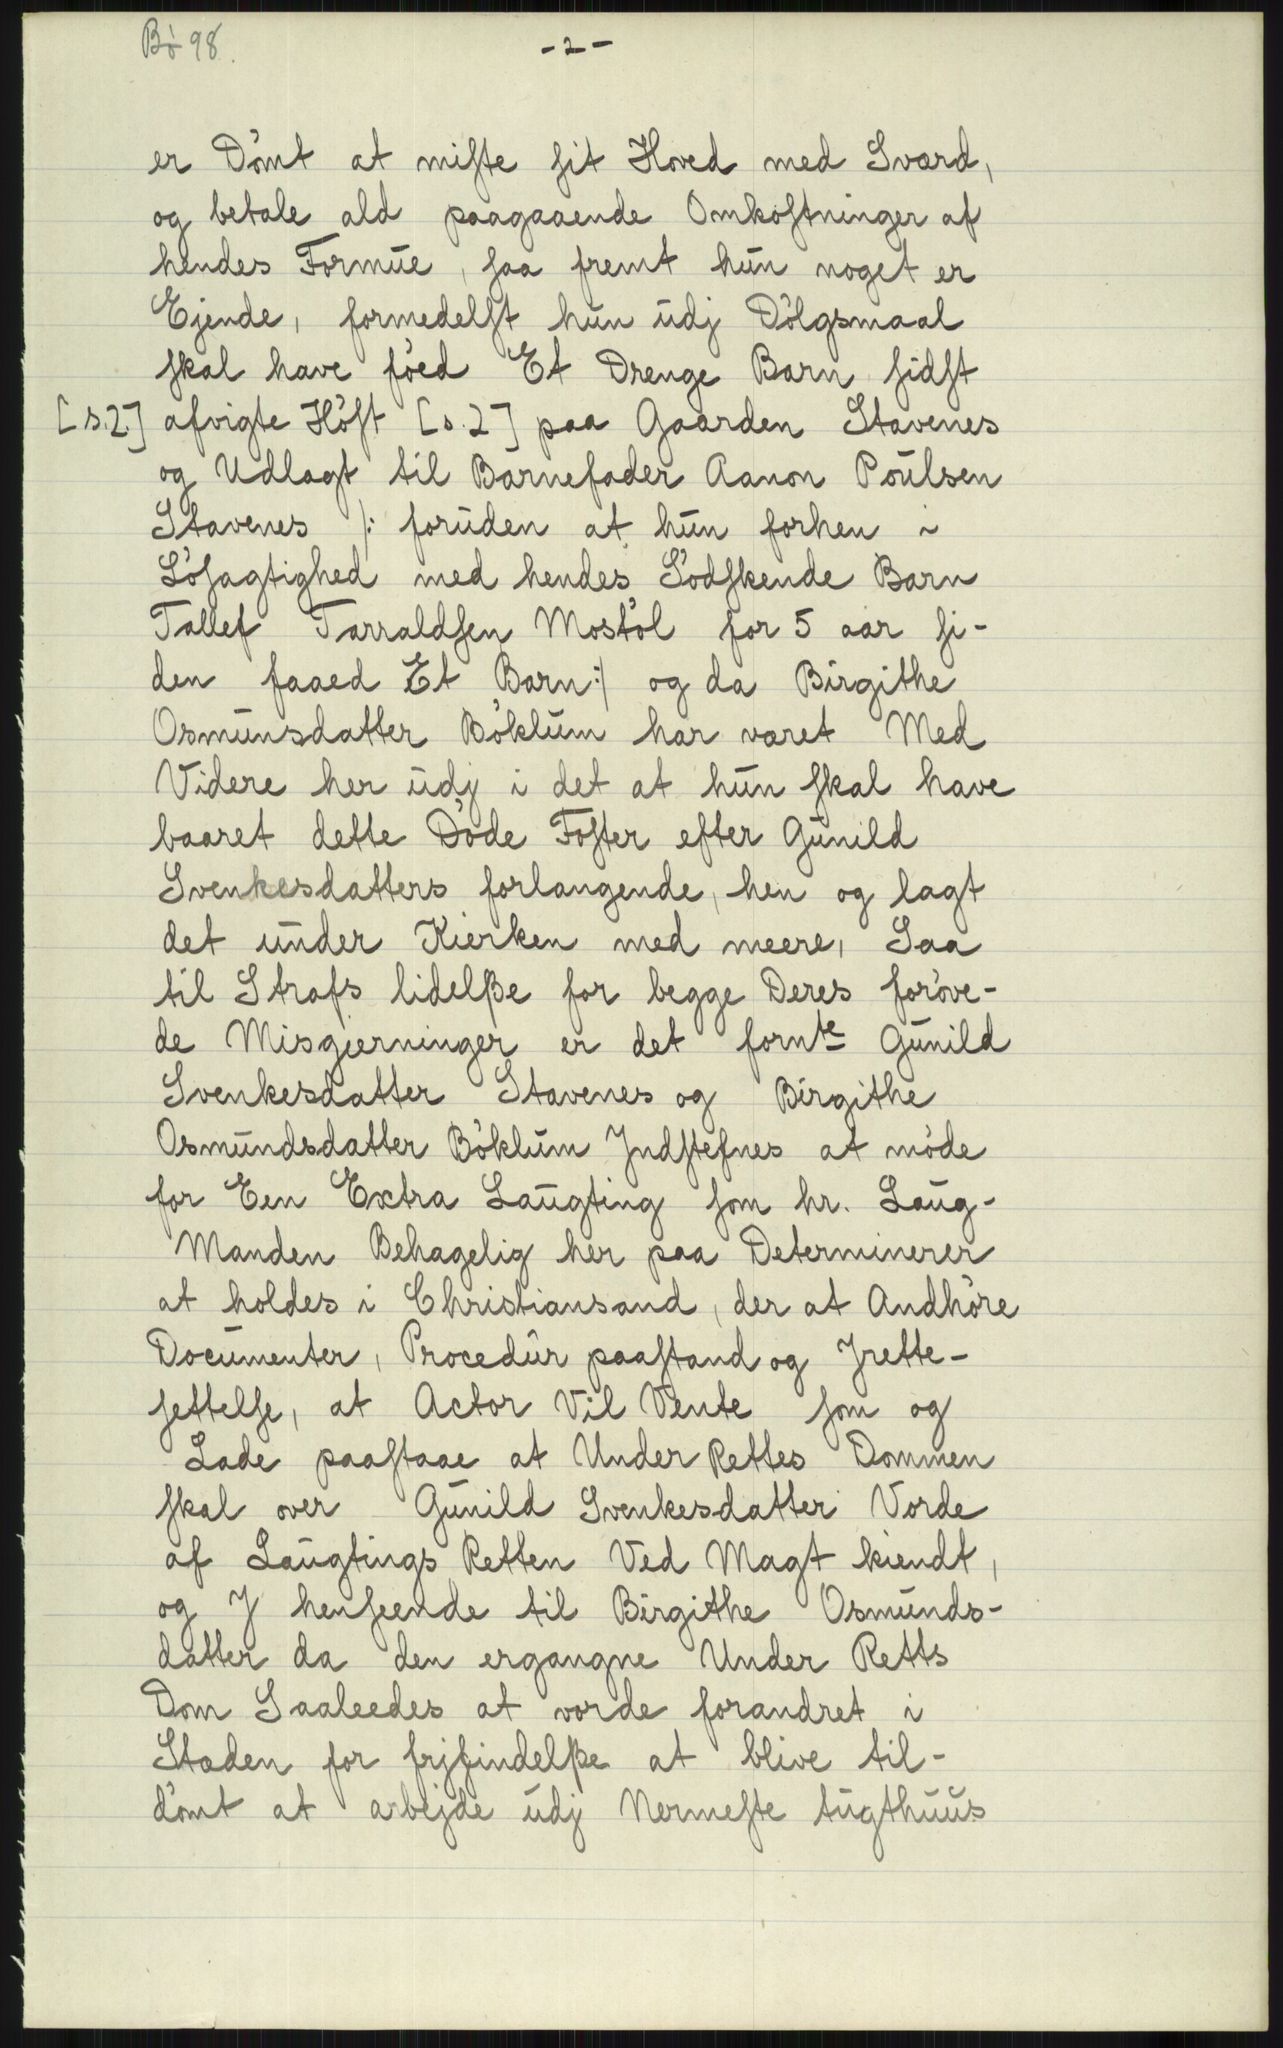 Bö 98.
- 2 -
er Dömt at miste sit Hoved med Sværd,
og betale ald paagaaende Omkostninger af
hendes Formue, saa fremt hun noget er
Ejende, formedelst hun udj Dölgsmaal
skal have föed Et Drenge Barn sidst
[s.2.] afvigte Höst [s. 2] paa Gaarden Stavenes
og Udlagt til Barnefader Aanon Poulsen
Stavenes /: foruden at hun forhen i
Lösagtighed med hendes Södskende Barn
Tallef Tarraldsen Mostöl for 5 aar si-
den faaed Et Barn:/ og da Birgithe
Osmunsdatter Böklum har været Med
Videre her udj i det at hun skal have
baaret dette Döde Foster efter Gunild
Svenkesdatters forlangende, hen og lagt
det under Kierken med meere, Saa
til Strafs lidelße for begge Deres foröve-
de Misgierninger er det fornte Gunild
Svenkesdatter Stavenes og Birgithe
Osmundsdatter Böklum Jndstefnes at möde
for Een Extra Laugting som hr. Laug-
Manden Behagelig her paa Determinerer
at holdes i Christiansand, der at Andhöre
Documenter, Procedur paastand og Jrette-
settelse, at Actor Vil Vente som og
Lade paastaae at Under Rettes Dommen
skal over Gunild Svenkesdatter Vorde
af Laugtings Retten Ved Magt kiendt,
og J henseende til Birgithe Osmunds-
datter da den ergangne Under Retts
Dom Saaleedes at vorde forandret i
Stæden for frjfindelße at blive til-
dömt at arbejde udj Nermeste tugthuus